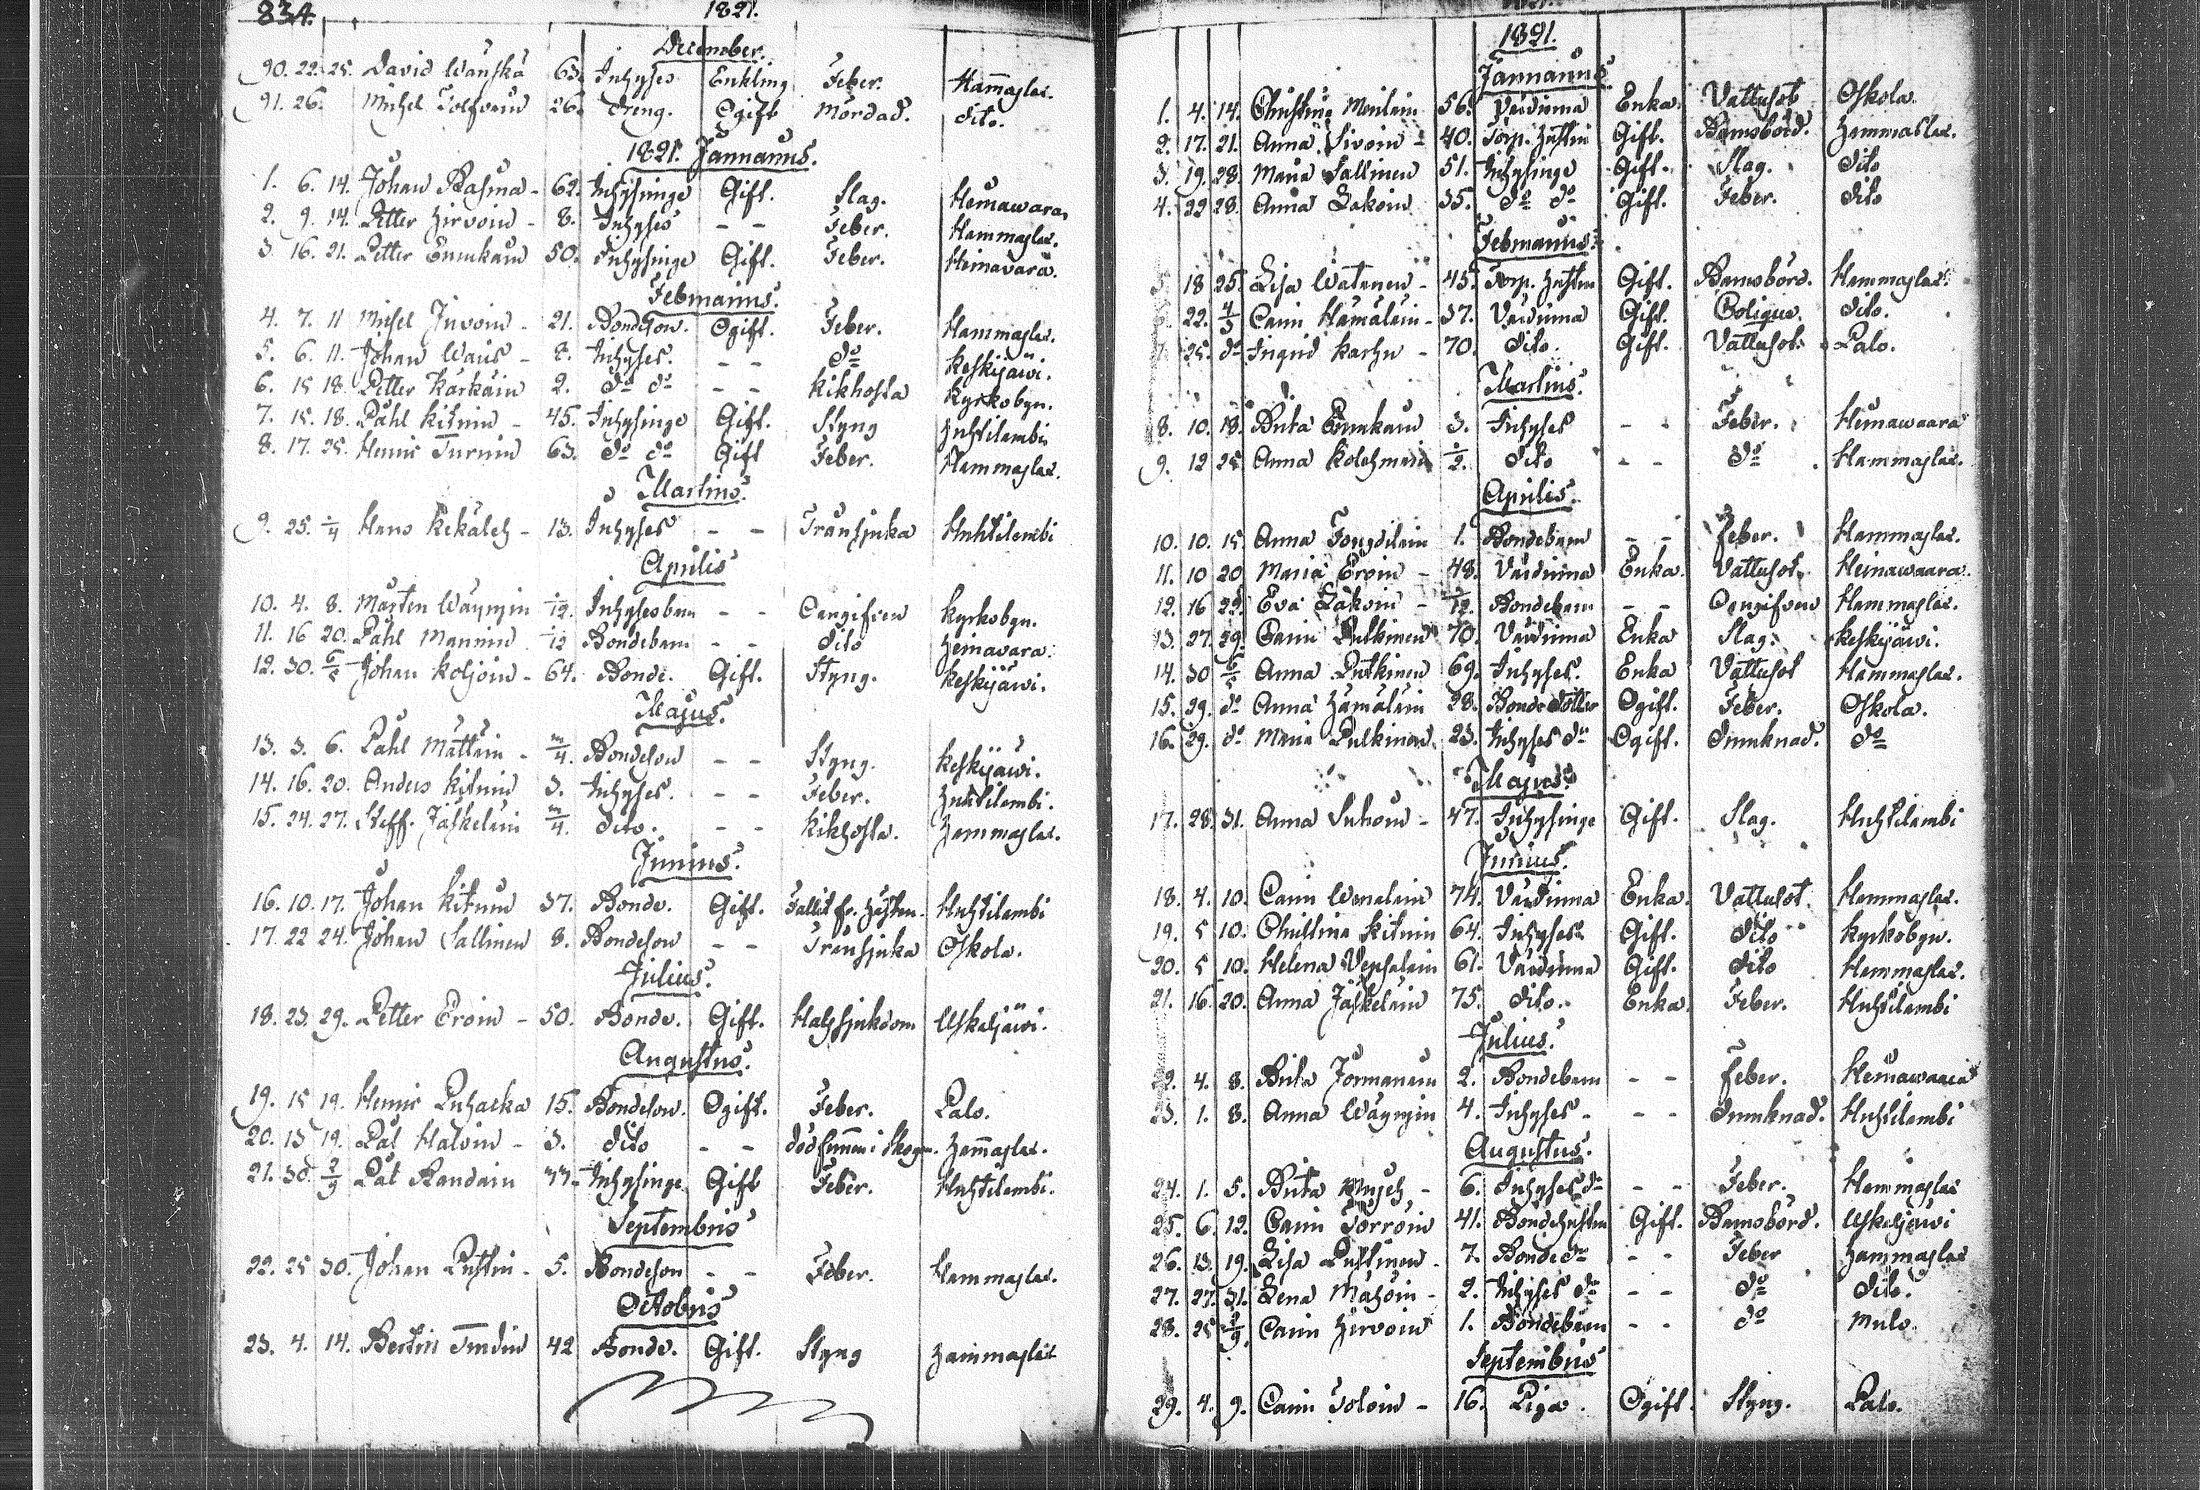 834.
1821.
December.
90. 22. 25. David Wänskä 63. Inhyses Enkling Feber. Hammaslax.
91. 26. Michel Tolfvain 26. Dreng. Ogift Mördad. dito.
1821. Januarius.
1. 6. 14. Johan Rasma - 62. Inhysinge Gift. Slag. Heinawara.
2. 9. 14. Petter Hirvoin - 8. Inhyses - - Feber. Hammaslax.
3. 16. 21. Petter Ennukain 50. Inhysinge Gift. Feber. Heinavara.
Februarius.
4. 7. 11 Michel Juvoin - 21. Bondeson. Ogift. Feber. Hammaslax.
5. 6. 11. Johan Wäis - 8. Inhyses. - - do Keskijäwi.
6. 15 18. Petter Kärkäin 2. do do - - Kikhosta Kyrkobyn.
7. 15. 18. Påhl Kitunin - 45. Inhysinge Gift. Styng Huhtilambi
8. 17. 25. Henric Turunin 63. do do Gift Feber. Hammaslax.
Martius.
9. 25. 1/4 Hans Kekäleh - 13. Inhyses - - Trånsjuka Huhtilambi
Aprilis
10. 4. 8. Mårten Wäyryin 1/12. Inhysesbarn - - Oangifven Kyrkobyn.
11. 16 20. Påhl Manninen 1/12 Bondebarn - - dito Heinavara.
12. 30. 6/5 Johan Koljoin - 64. Bonde. Gift. Styng. Keskijäwi.
Majus.
13. 3. 6. Påhl Mattlin - m/4. Bondeson - - Styng. Keskijäwi.
14. 16. 20. Anders Kitunin 3. Inhyses. - - Feber. Huhtilambi.
15. 24. 27. Steff. Jäskeläin m/4. dito. - - Kikhosta. Hammaslax.
Junius.
16. 10. 17. Johan Kitunin 37. Bonde. Gift. Fallit fr. Hästen. Huhtilambi
17. 22 24. Johan Sallinen 8. Bondeson - - Trånsjuka Oskola.
Julius.
18. 23. 29. Petter Eroin - 50. Bonde. Gift. Halssjukdom Uskaljäwi.
Augustus.
19. 15 19. Henric Puhacka 15. Bondeson. Ogift. Feber. Palo.
20. 13 19. Pål Haloin - 3. dito - - död funnen i Skogen. Hammaslax.
21. 30. 2/9 Pål Randain 33. Inhysinge Gift Feber. Huhtilambi.
Septembris
22. 25 30. Johan Pustin - 5. Bondeson - - Feber. Hammaslax.
Octobris
23. 4. 14. Bertin 42 Bonde. Gift. Styng Hammaslax
1821.
Januarius
1. 4. 14. Christina 56. Värdinna Enka. Vattusot Oskola.
2. 17. 21. Anna Sivoin - 40. Torp. Hustru Gift. Barnsbörd. Hammaslax.
3. 19. 28 Maria Sallinen 51. Inhysinge Gift. Slag. dito
4. 22 28. Anna Lakoin 35. do do Gift. Feber. dito
Februarius.
5. 18 25. Lisa Watanen - 45. Torp. Hustru Gift. Barnsbörd. Hammaslax.
6. 22. 4/3 Carin Hämäläin - 37. Värdinna Gift. Colique. dito.
7. 25. do Ingrid Karhu - 70. dito. Gift. Vattusot. Palo.
Martius.
8. 10. 18. Brita Ennukain 3. Inhyses - - Feber. Heinawaara
9. 12 25 Anna Kolehmain 1/2. dito - - do Hammaslax.
Aprilis.
10. 10. 15. Anna 1. Bondebarn - - feber. Hammaslax.
11. 10 20 Maria Eroin - 48. Värdinna Enka. Vattusot. Heinawaara.
12. 16 22. Eva Lakoin - 1/12. Bondebarn - - Oangifven Hammaslax.
13. 27. 29. Carin Pulkinen 70. Värdinna Enka Slag. Keskijäwi.
14. 30 6/5 Anna Putkinen 69. Inhyses. Enka Vattusot Hammaslax.
15. 29. do Anna Hämäläin 28. Bonde Dotter Ogift. Feber. Oskola.
16. 29. do Maria Pulkinen 23. Inhyses dr Ogift. Drunknad. do
Majus.
17. 28. 31. Anna Suhoin - 47. Inhysinge Gift. Slag. Huhtilambi
Junius.
18. 4. 10. Carin Wenäläin 74. Värdinna Enka. Vattusot. Hammaslax.
19. 5 10. Christina Kitunin 64. Inhyses Gift. dito Kyrkobyn.
20. 5 10. Helena Vepsäläin 61. Värdinna Gift. dito Hammaslax.
21. 16. 20. Anna Jäskeläin 75. dito. Enka. Feber. Huhtilambi
Julius.
22. 4. 8. Brita 2. Bondebarn - - feber. Heinawaara
23. 1. 8. Anna Wäyryin 4. Inhyses - - - Drunknad. Huhtilambi
Augustus.
24. 1. 5. Brita - 6. Inhyses dr - - Feber. Hammaslax
25. 6. 12. Carin Torroin 41. Bondehustru Gift. Barnsbörd. Uskaljäwi
26. 13. 19. Lisa Pustinen - 7. Bonde dr - - Feber Hammaslax
27. 27. 31. Lena Mähöin - 2. Inhyses dr - - do dito.
28. 25 2/9. Carin Hirvoin 1. Bondebarn - - do Mulo.
Septembris
29. 4. 9. Carin Toloin - 16. Piga. Ogift. Styng. Palo.